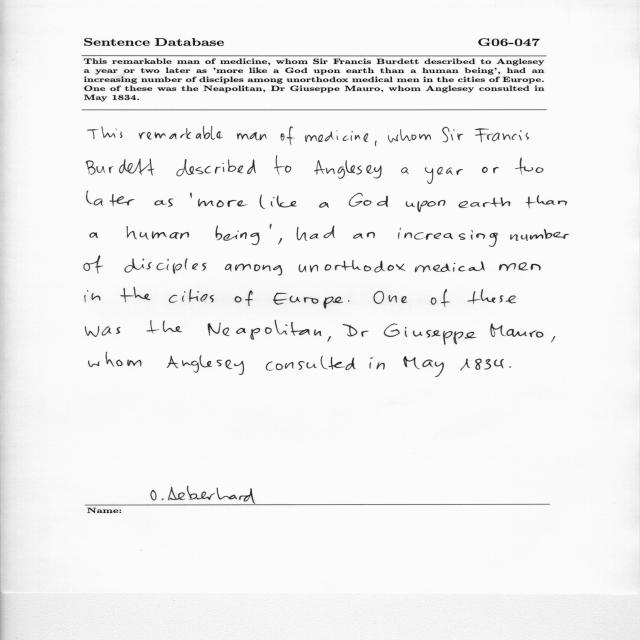 Sentence Database G06-047
This remarkable man of medicine, whom Sir Francis Burdett described to Anglesey
a year or two later as 'more like a God upon earth than a human being', had an
increasing number of disciples among unorthodox medical men in the cities of Europe.
One of these was the Neapolitan, Dr Giuseppe Mauro, whom Anglesey consulted in
May 1834.
This remarkable man of medicine, whom Sir Francis
Burdett described to Anglesey a year or two
later as 'more like a God upon earth than
a human being', had an increasing number
of disciples among unorthodox medical men
in the cities of Europe. One of these
was the Neapolitan, Dr Giuseppe Mauro,
whom Anglesey consulted in May 1834.
O. Aeberhard
Name: